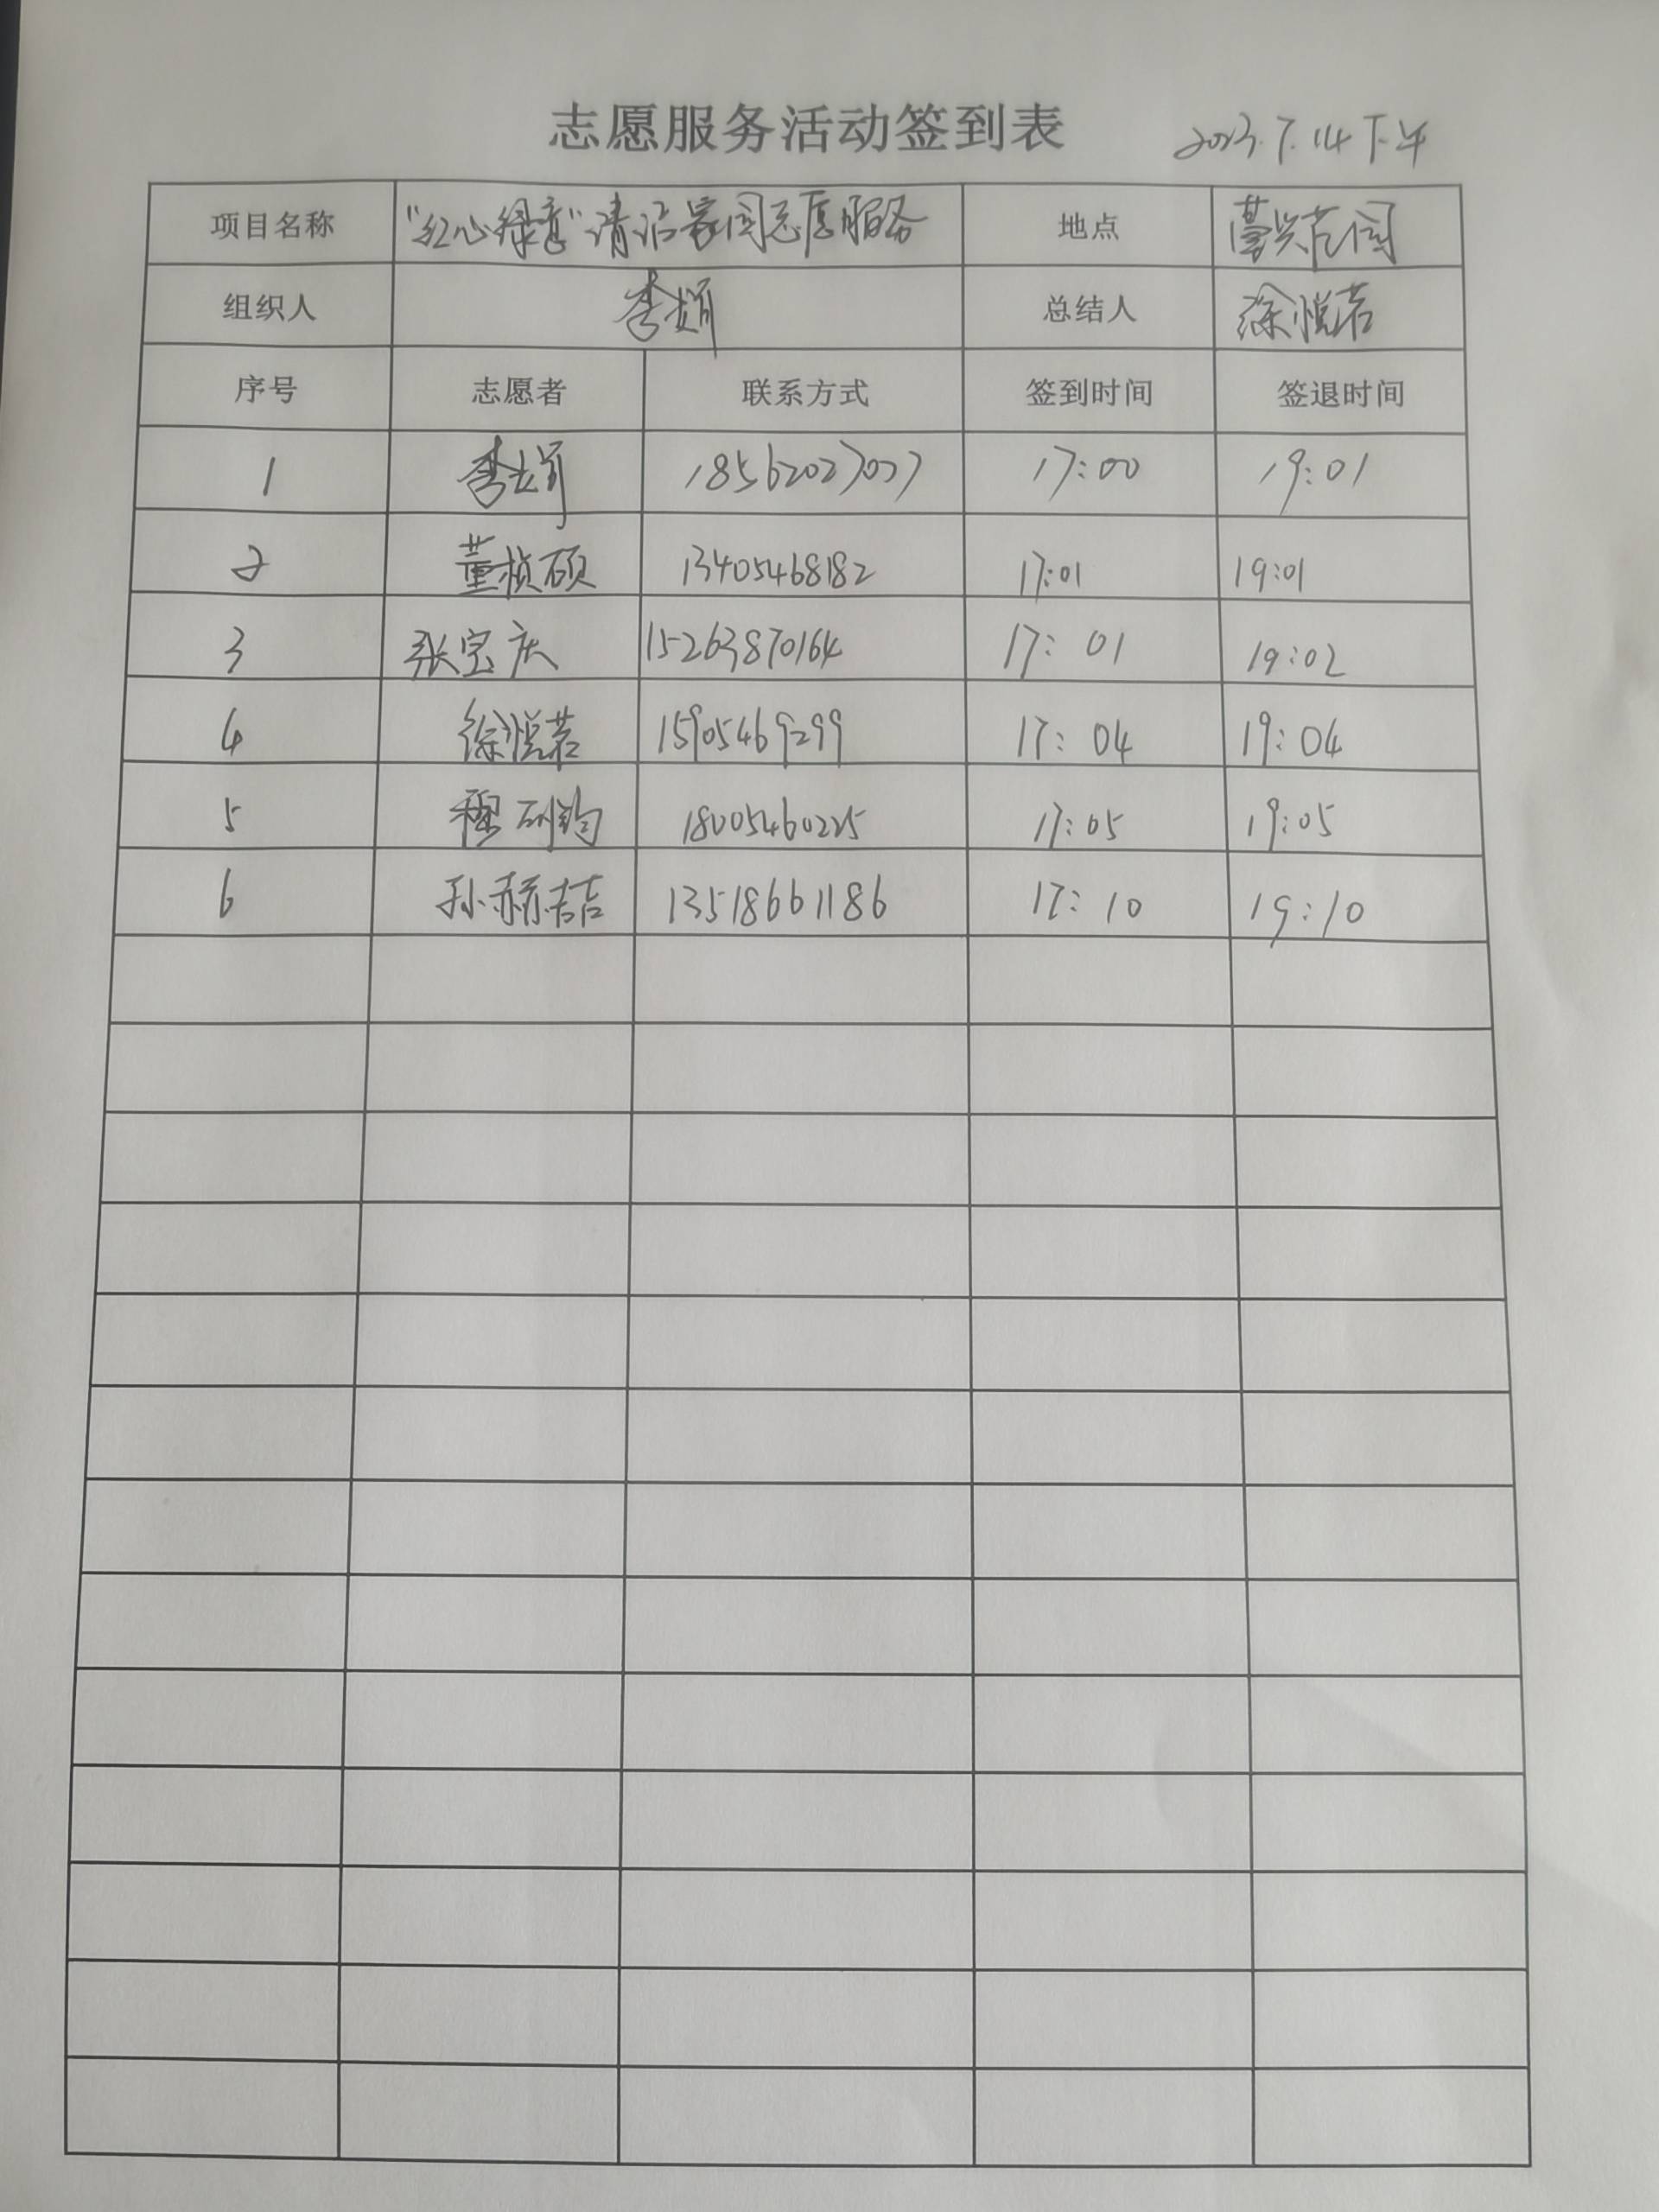 志愿服务活动签到表 2023.7.14下午
项目名称 "红心绿意"清洁家园志愿服务 地点
组织人 李娟 总结人 徐悦若
序号 志愿者 联系方式 签到时间 签退时间
1 李娟 18562027027 17:00 19:01
2 董桢硕 13405468182 17:01 19:01
3 张宝庆 15263870164 17:01 19:02
4 徐悦若 15905469299 17:04 19:04
5 18005460225 17:05 19:05
6 孙赫喆 13518661186 17:10 19:10